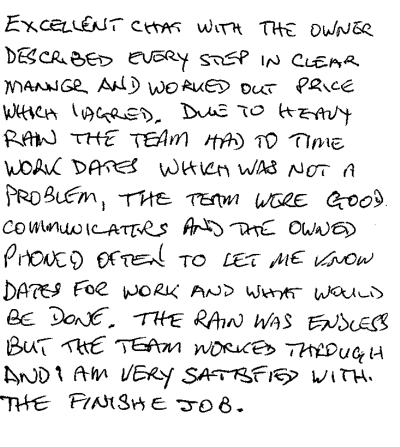 EXCELLENT CHAT WITH THE OWNER
DESCRIBED EVERY STEP IN CLEAR
MANNER AND WORKED OUT PRICE
WHICH I AGRED. DUE TO HEAVY
RAIN THE TEAM HAD TO TIME
WORK DATES WHICH WAS NOT A
PROBLEM, THE TEAM WERE GOOD
COMMUNICATERS AND THE OWNED
PHONED OFTEN TO LET ME KNOW
DATES FOR WORK AND WHAT WOULD
BE DONE. THE RAIN WAS ENDLESS
BUT THE TEAM WORKED THROUGH
AND I AM VERY SATTSFIED WITH.
THE FINISHE JOB.